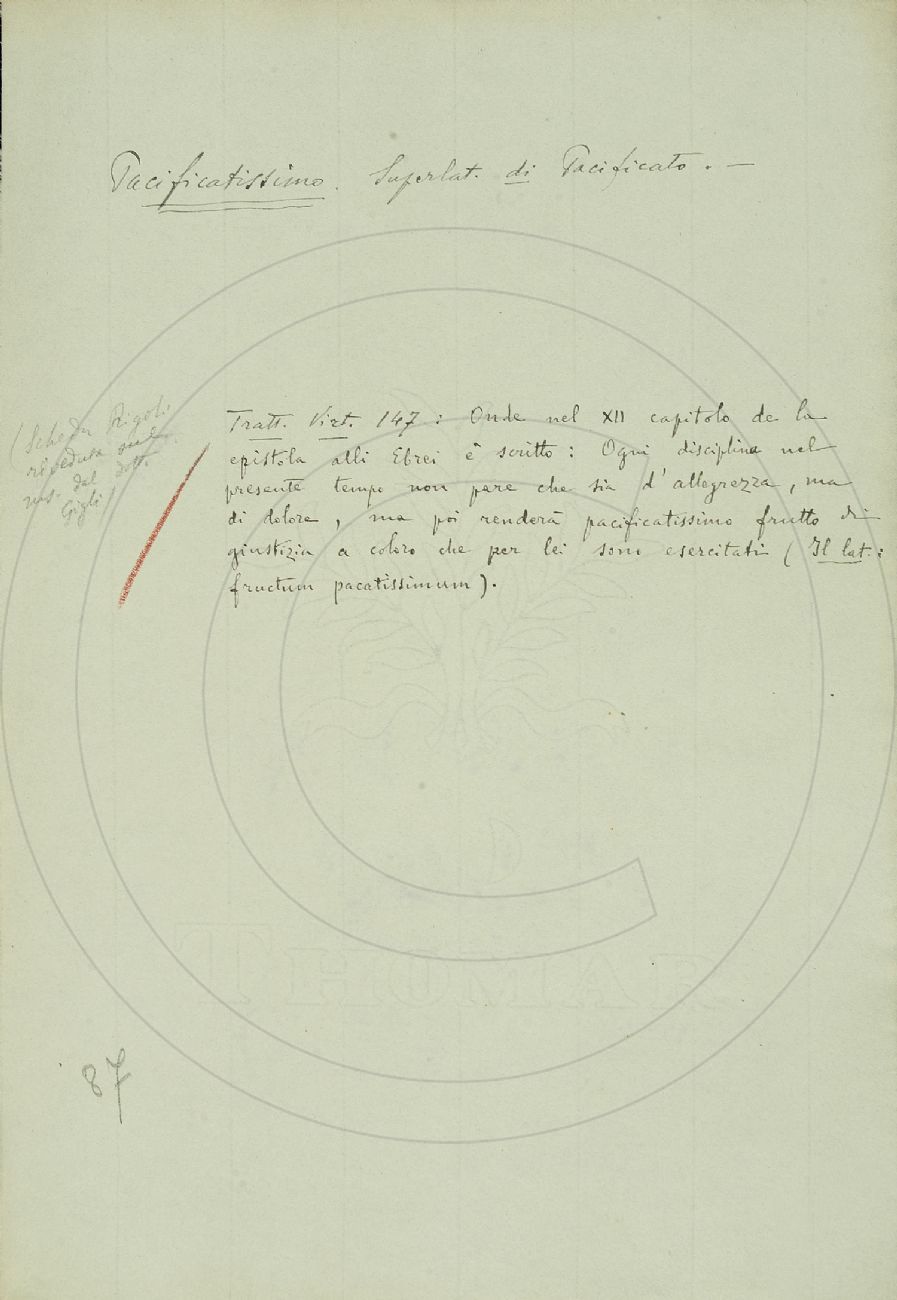 Pacificatissimo. Superlat. di Pacificato. —
(Scheda Rigoli
riveduta sul
ms. dal Dott.
Gigli)
Tratt. Virt. 147 : Onde nel XII capitolo de la
epistola alli Ebrei è scritto : Ogni disciplina nel
presente tempo non pare che sia d'allegrezza, ma
di dolore, ma poi renderà pacificatissimo frutto di
giustizia a coloro che per lei sono esercitati (Il lat.:
fructum pacatissimum).
THOMAR
87